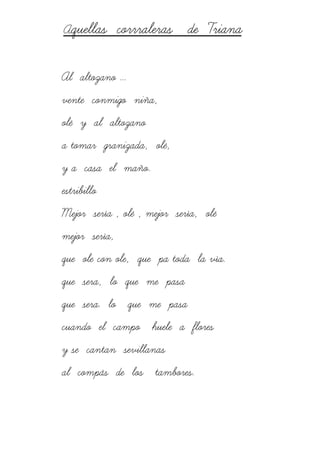 Aquellas corrraleras de Triana
Al altozano ...
vente conmigo niña,
ole y al altozano
a tomar granizada, olé,
y a casa el maño.
estribillo
Mejor sería , olé , mejor sería, olé
mejor sería,
que ole con ole, que pa toda la vía.
que sera, lo que me pasa
que sera lo que me pasa
cuando el campo huele a flores
y se cantan sevillanas
al compás de los tambores.